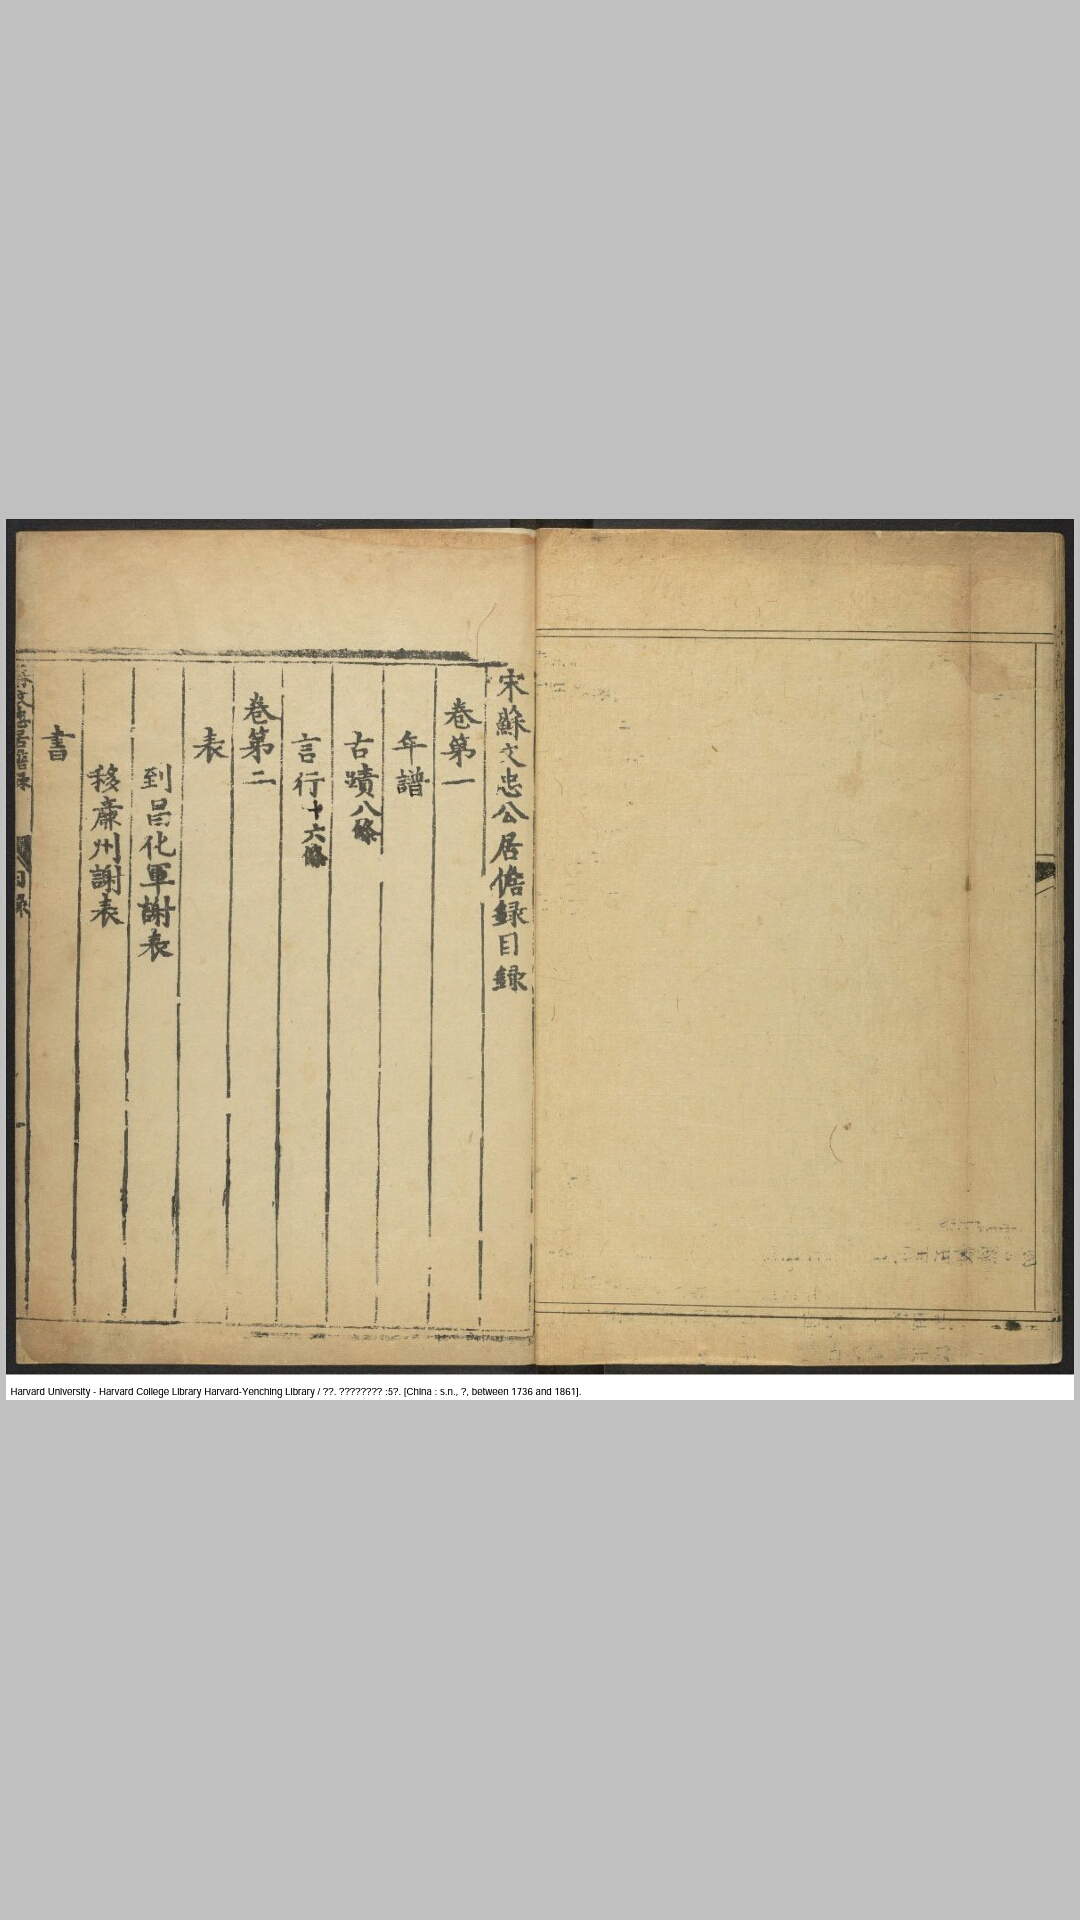 宋蘇文忠公居儋録目録
卷第一
年譜
古蹟八條
言行十六條
卷第二
表
到昌化軍謝表
移廉州謝表
書
目録
一
Harvard University - Harvard College Library Harvard-Yenching Library / ??. ???????? :5?. [China : s.n., ?, between 1736 and 1861].